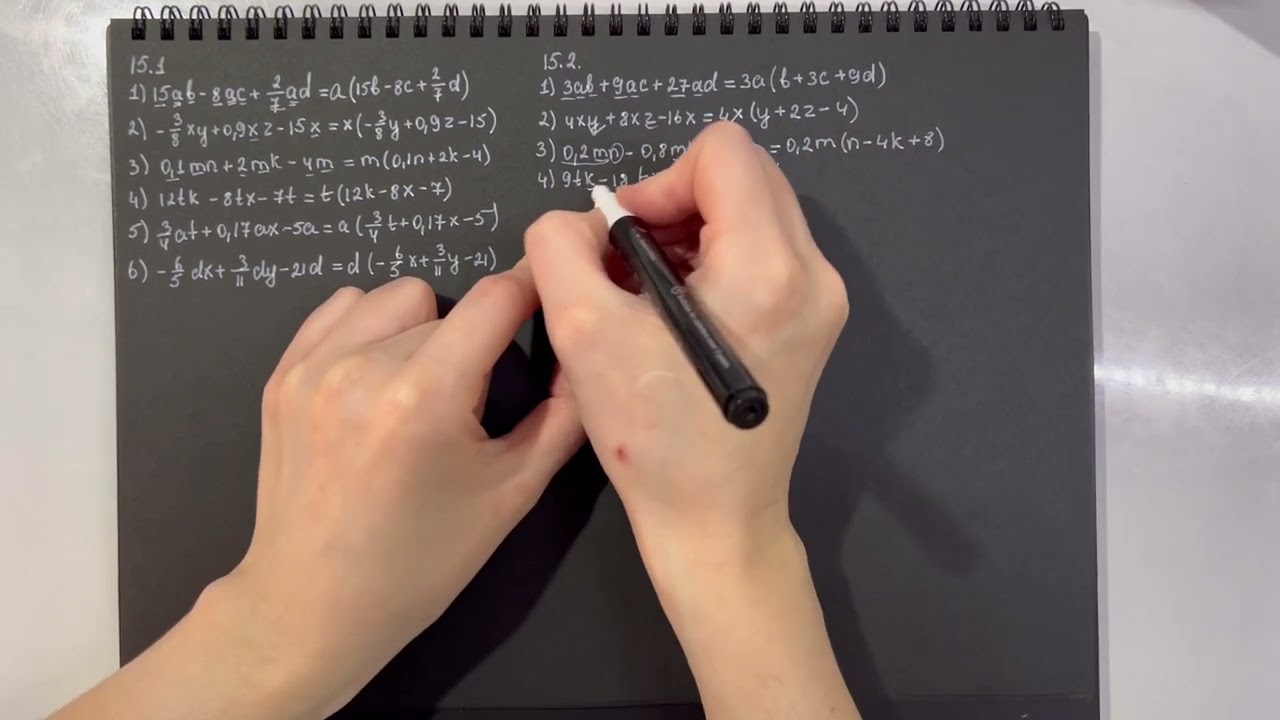 15.1
1) 15ab - 8ac + 2/7 ad = a(15b - 8c + 2/7 d)
2) - 3/8 xy + 0,9xz - 15x = x(- 3/8 y + 0,9z - 15)
3) 0,1mn + 2mk - 4m = m(0,1n + 2k - 4)
4) 12tk - 8tx - 7t = t(12k - 8x - 7)
5) 3/4 at + 0,17ax - 5a = a(3/4 t + 0,17x - 5)
6) - 6/5 dx + 3/11 dy - 21d = d(- 6/5 x + 3/11 y - 21)
15.2.
1) 3ab + 9ac + 27ad = 3a(b + 3c + 9d)
2) 4xy + 8xz - 16x = 4x(y + 2z - 4)
3) 0,2mn - 0,8m = 0,2m(n - 4k + 8)
4) 9tk - 18t